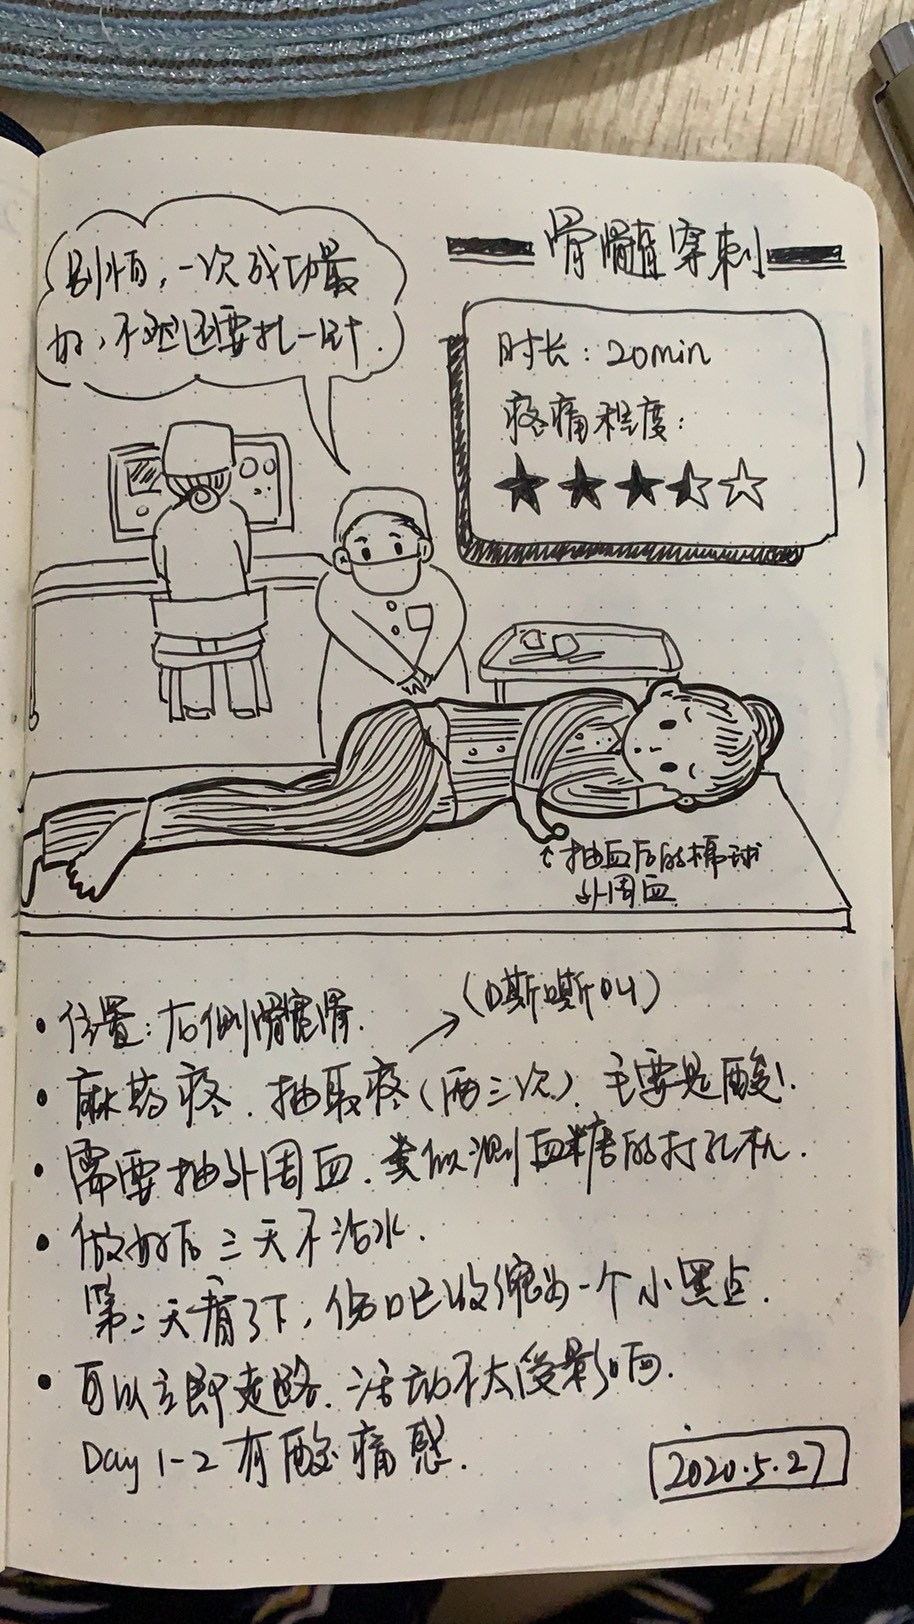 骨髓穿刺
别怕，一次成功最
好，不然还要扎一针.
时长：20min
疼痛程度：
↑抽血后的棉球
外周血
(嘶嘶叫)
• 位置：右侧髂髋骨.
• 麻药疼、抽取疼(两三次)、主要是酸！
• 需要抽外周血、类似测血糖的打孔机.
• 做好后三天不沾水.
第二天看了下，伤口已收缩为一个小黑点.
• 可以立即走路、活动不太受影响.
Day 1-2 有酸痛感.
2020.5.27